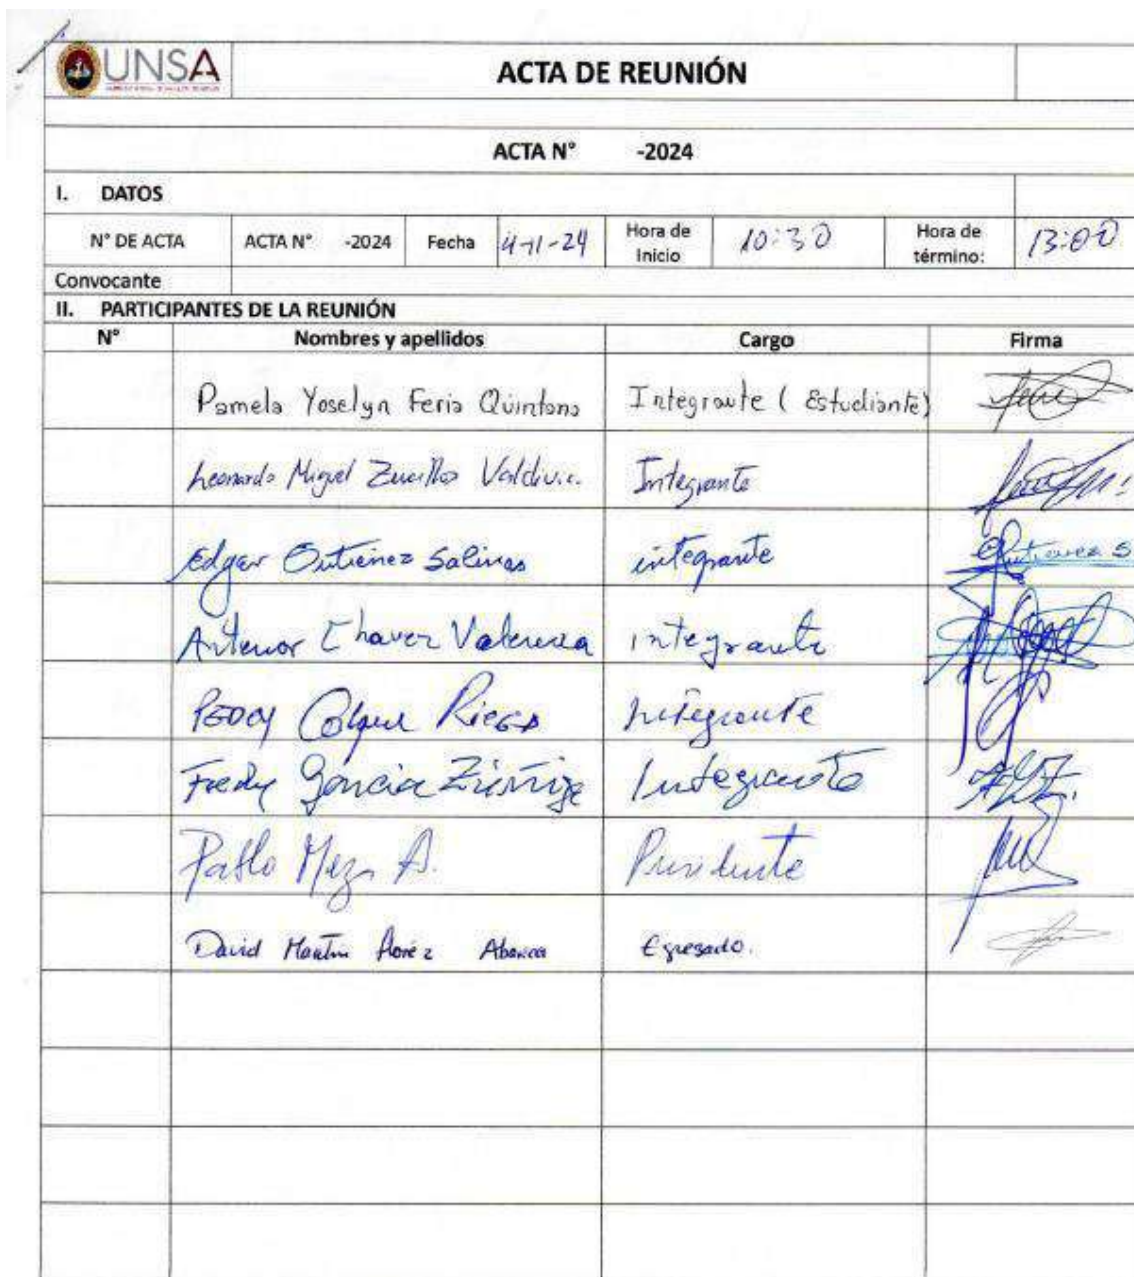 UNSA
ACTA DE REUNIÓN
ACTA N° -2024
I. DATOS
N° DE ACTA ACTA N° -2024 Fecha 4-11-24 Hora de Inicio 10:30 Hora de término: 13:00
Convocante
II. PARTICIPANTES DE LA REUNIÓN
N° Nombres y apellidos Cargo Firma
Pamela Yoselyn Feria Quintana Integrante (Estudiante)
Leonardo Miguel Valdivia Integrante
Edgar Gutierrez Salinas integrante Gutierrez S
Antenor Chavez Valencia integrante
Colque Integrante
Fredy Garcia Zúñiga Integrante
Pablo Meza A. Presidente
David Martin Abarca Egresado.